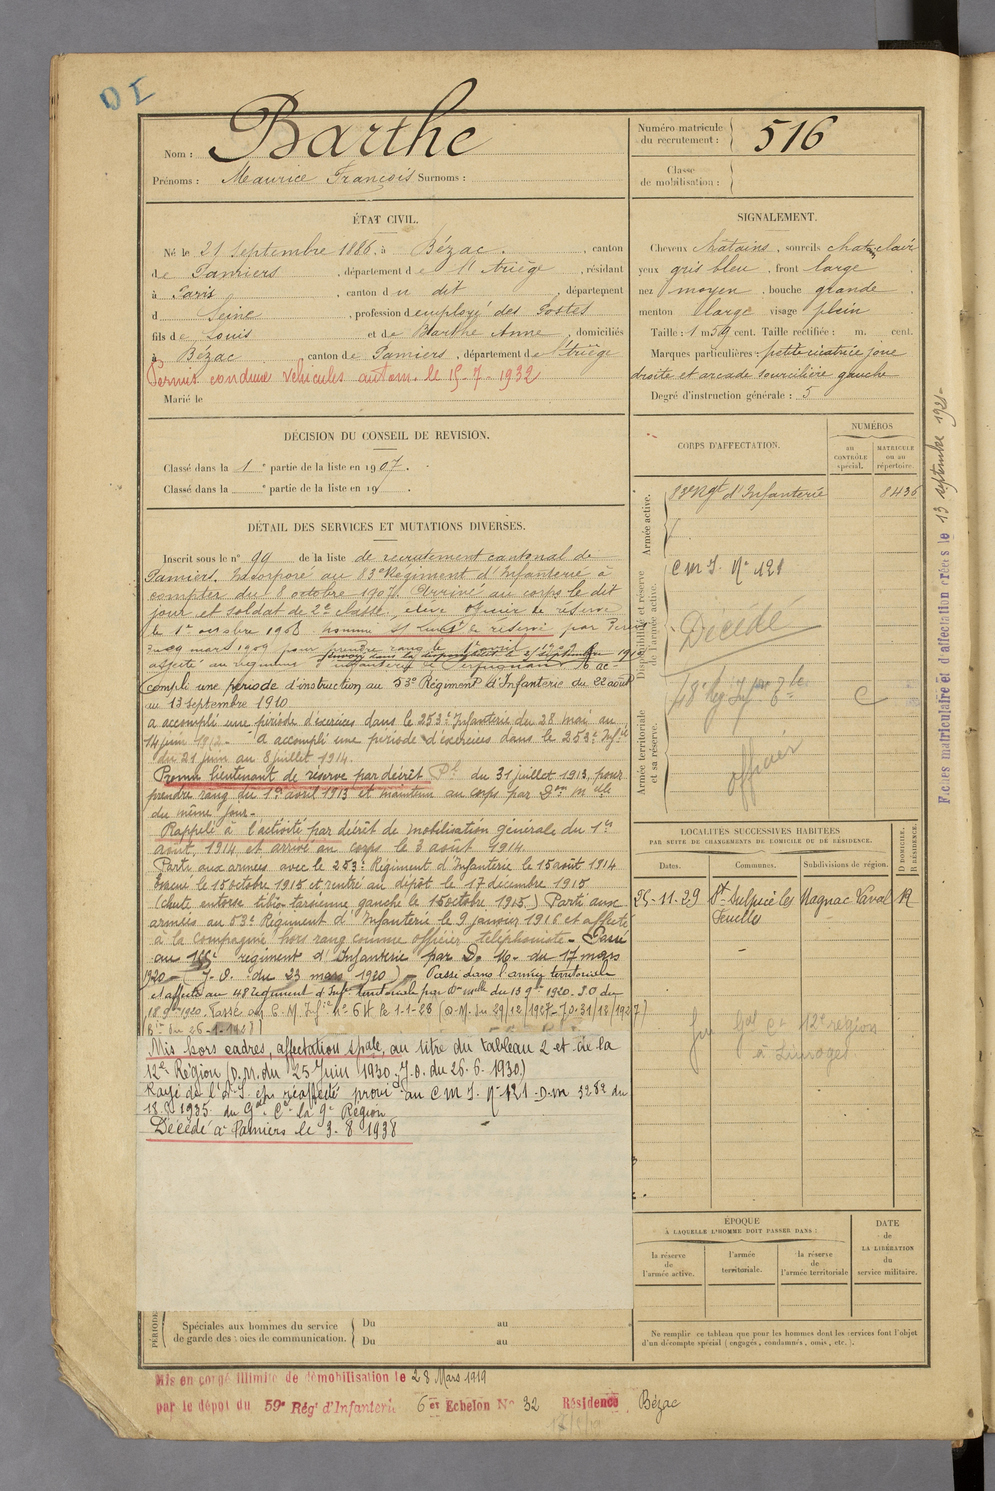 DI
Nom : Barthe
Prénoms : Maurice François Surnoms :
Numéro matricule du recrutement : 516
Classe de mobilisation :
ÉTAT CIVIL.
Né le 21 Septembre 1886, à Bézac, canton
de Pamiers, département de l'Ariège, résidant
à Paris, canton du dit, département
d Seine, profession d employé des Postes
fils de Louis et de Barthe Anne, domiciliés
à Bézac canton de Pamiers, département de l'Ariège
Permis conduire véhicules autom. le 15-7-1932
Marié le
SIGNALEMENT.
Cheveux châtains, sourcils chat. clair
yeux gris bleu, front large
nez moyen, bouche grande
menton large visage plein
Taille : 1 m 59 cent. Taille rectifiée : m. cent.
Marques particulières : petite cicatrice joue
droite et arcade sourcilière gauche
Degré d'instruction générale : 5
DÉCISION DU CONSEIL DE REVISION.
Classé dans la 1e partie de la liste en 1907.
Classé dans la e partie de la liste en 19 .
DÉTAIL DES SERVICES ET MUTATIONS DIVERSES.
Inscrit sous le n° 94 de la liste de recrutement cantonal de
Pamiers. Incorporé au 83e Régiment d'Infanterie à
compter du 8 octobre 1907. Arrivé au corps le dit
jour et soldat de 2e classe. élève officier de réserve
le 1er octobre 1908 nommé S/ Lieut. de réserve par
29 mars 1909 pour prendre rang le
affecté au régiment d'infanterie de Perpignan ac-
compli une période d'instruction au 53e Régiment d'Infanterie du 22 août
au 13 septembre 1910
a accompli une période d'exercices dans le 253e Infanterie du 28 mai au
14 juin 1912. A accompli une période d'exercices dans le 253e Inf ie
du 21 juin au 8 juillet 1914.
Promu lieutenant de réserve par décret Pl du 31 juillet 1913, pour
prendre rang du 1er avril 1913 et maintenu au corps par Don mlle
du même jour.
Rappelé à l'activité par décret de mobilisation générale du 1er
août 1914 et arrivé au corps le 3 août 1914.
Parti aux armées avec le 253e Régiment d'Infanterie le 15 août 1914
Evacué le 15 octobre 1915 et rentré au dépôt le 17 décembre 1915
(chute entorse tibio-tarsienne gauche le 15 octobre 1915.) Parti aux
armées au 53e Régiment d'Infanterie le 9 janvier 1916 et affecté
à la compagnie hors rang comme officier téléphoniste. Passé
au régiment d'Infanterie par D. M. du 17 mars
1920 - (J.O. du 23 mars 1920) - Passé dans l'armée territoriale
et affecté au 48 régiment d'Infie territoriale par Don mlle du 13 9bre 1920. J.O du
18 9bre 1920. Passé au C. M. Infie n° 64 le 1-1-28 (D.M. du 29/12/1927 - J.O. 31/12/1927)
Mis hors cadres, affectation spale, au titre du tableau 2 et de la
12e Région (D.M. du 25 Juin 1930. J.O. du 26.6.1930)
Rayé de l'A.S. est réaffecté provi au C M I. N° 121 - D.M
du Gal Ct la 9e Région
Décédé à Pamiers le 3.8.1938
CORPS D'AFFECTATION.
NUMÉROS
au CONTRÔLE spécial.
MATRICULE ou au répertoire.
Armée active.
83e Rgt d'Infanterie 8436
Disponibilité et réserve de l'armée active.
C M I. N° 121
Décédé
Armée territoriale et sa réserve.
48e Reg Inf
officier
LOCALITÉS SUCCESSIVES HABITÉES
PAR SUITE DE CHANGEMENTS DE DOMICILE OU DE RÉSIDENCE.
Dates. Communes. Subdivisions de région. D DOMICILE. R RÉSIDENCE.
25-11-29 St Sulpice les Feuilles Magnac Laval R
Gal Ct 12e région
à Limoges
ÉPOQUE
À LAQUELLE L'HOMME DOIT PASSER DANS :
la réserve de l'armée active.
l'armée territoriale.
la réserve de l'armée territoriale
DATE de LA LIBÉRATION du service militaire.
PÉRIODE
Spéciales aux hommes du service
de garde des voies de communication.
Du au
Du au
Ne remplir ce tableau que pour les hommes dont les services font l'objet
d'un décompte spécial (engagés, condamnés, omis, etc.).
Mis en congé illimité de démobilisation le 28 Mars 1919
par le dépôt du 59e Régt d'Infanterie 6 er Echelon N° 32 Résidence Bézac
Fiches matriculaire et d'affectation créées le 13 septembre 1921